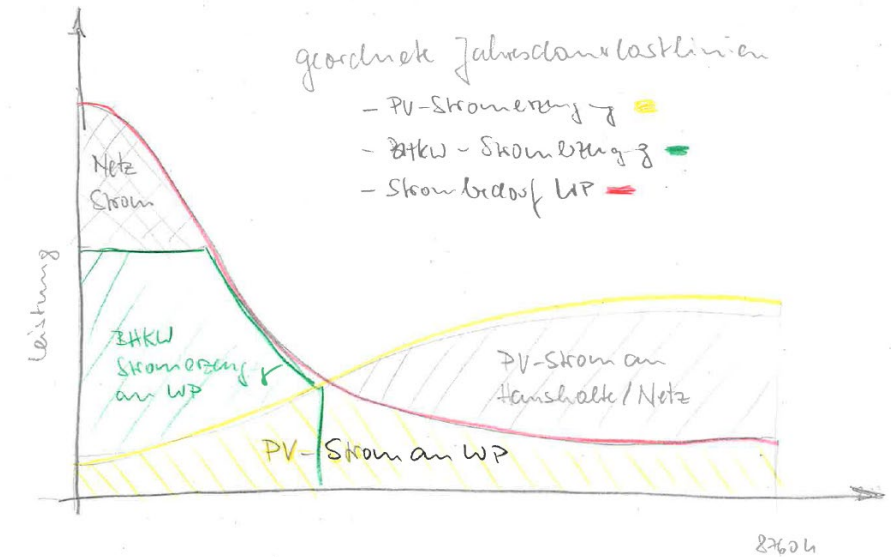 geordnete Jahresdauerlastlinien
- PV-Stromerzeugung
- BHKW-Stromerzeugung
- Strombedarf WP
Netz
Strom
Leistung
BHKW
Stromerzeugung
an WP
PV-Strom an
Haushalte/Netz
PV-Strom an WP
8760 h